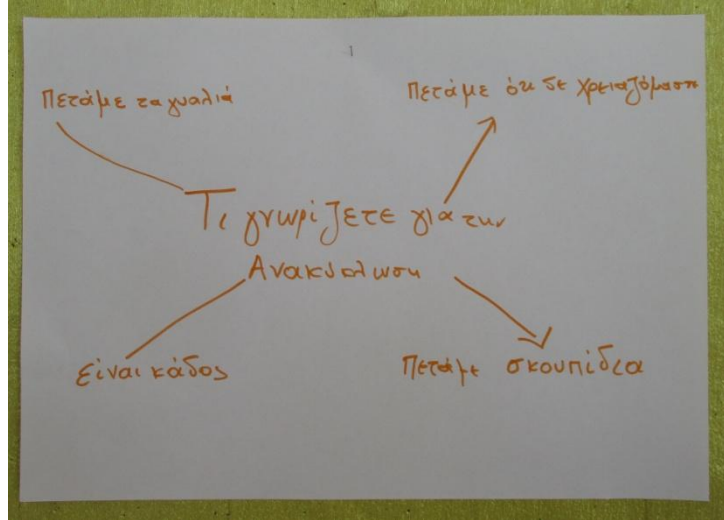 Πετάμε τα γυαλιά
Πετάμε ότι δε χρειαζόμαστε
Τι γνωρίζετε για την
Ανακύκλωση
Είναι κάδος
Πετάμε σκουπίδια